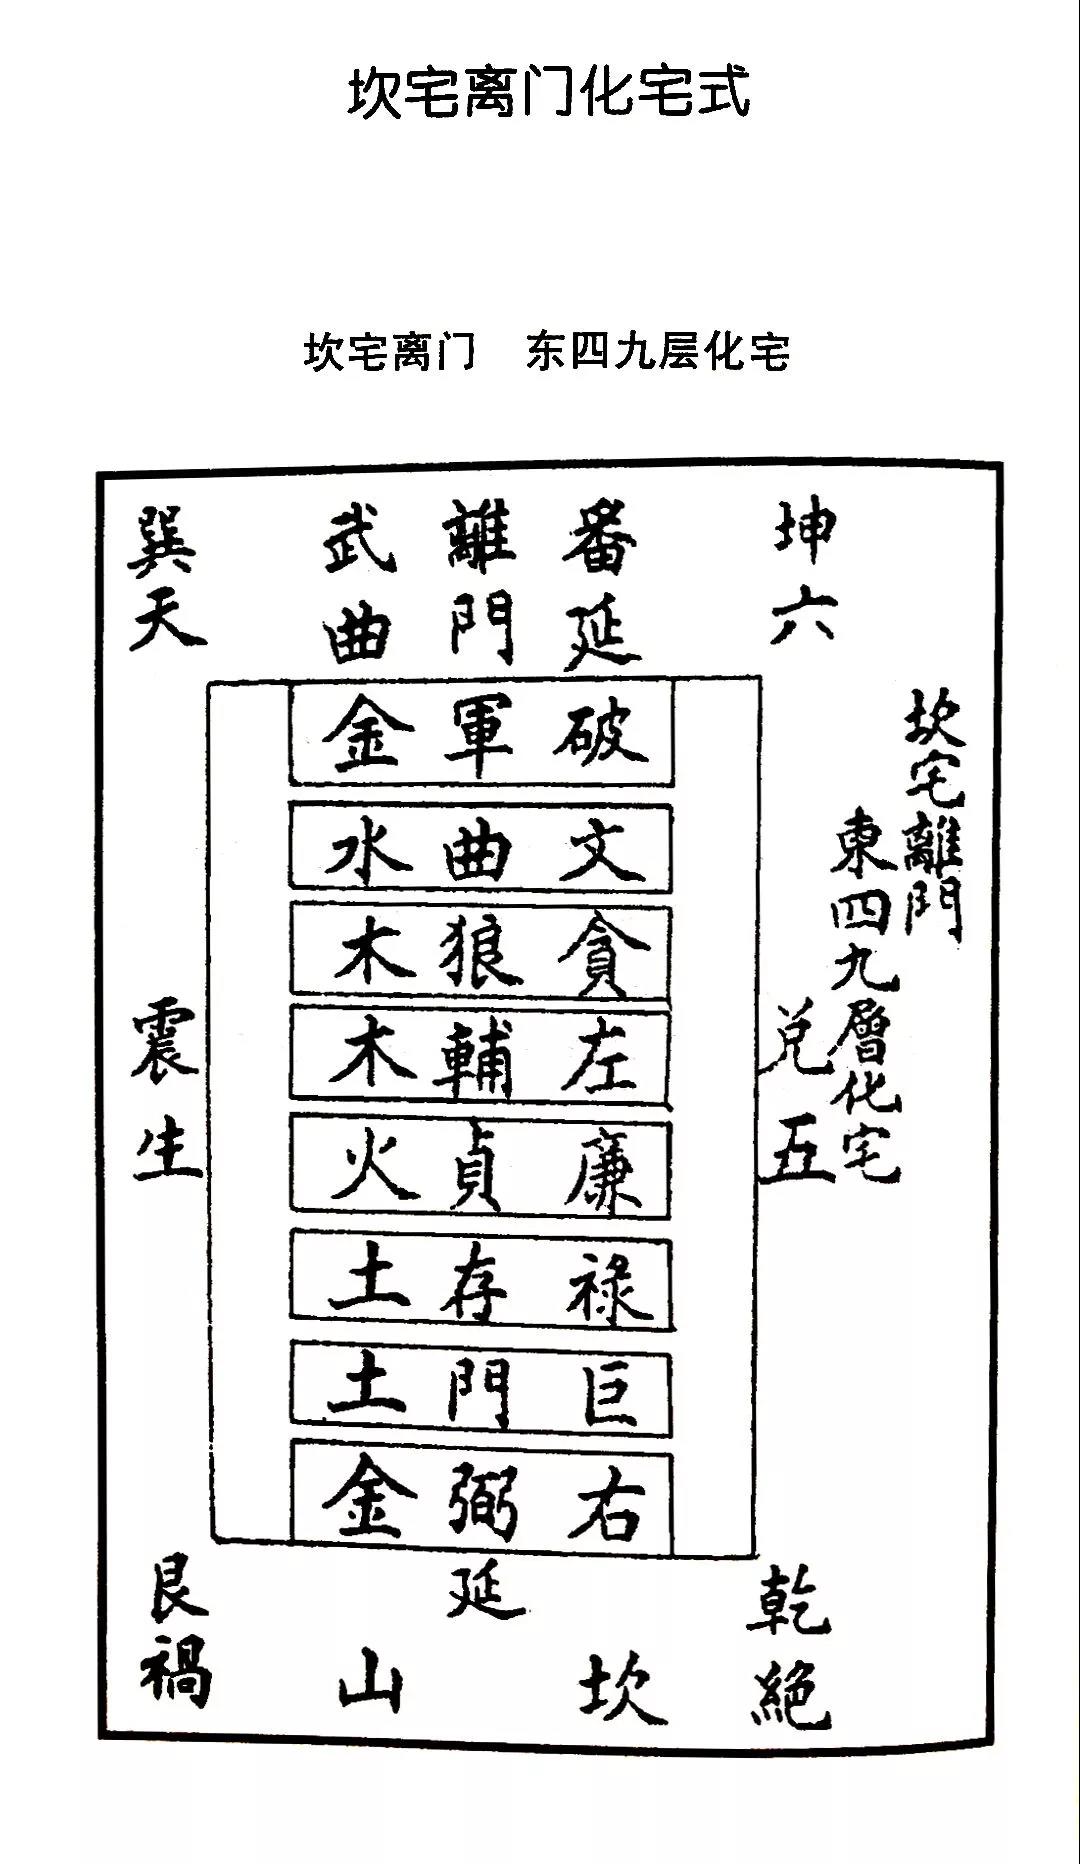 坎宅离门化宅式
坎宅离门 东四九层化宅
坎宅離門
東四九層化宅
坤六
番延
離門
武曲
巽天
破軍金
文曲水
貪狼木
左輔木
廉貞火
祿存土
巨門土
右弼金
兑五
震生
延
乾絕
坎山
艮禍